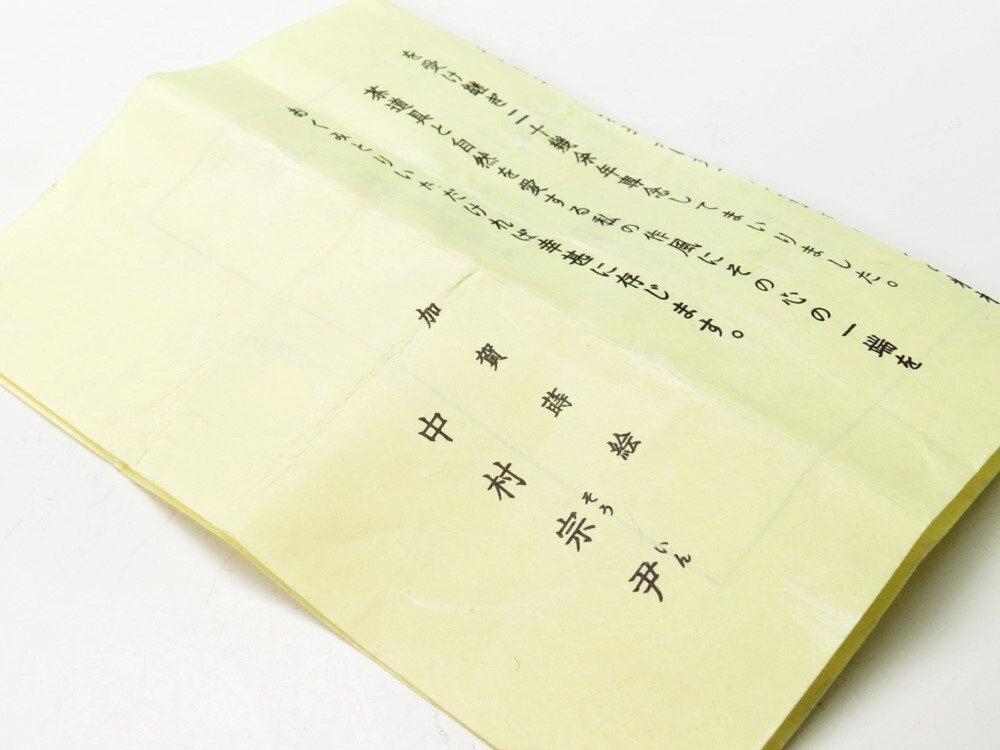 を受け継ぎ二十幾余年専念してまいりました。
茶道具と自然を愛する私の作風にその心の一端を
おくみとりいただければ幸甚に存じます。
加賀蒔絵
中村宗尹
そういん